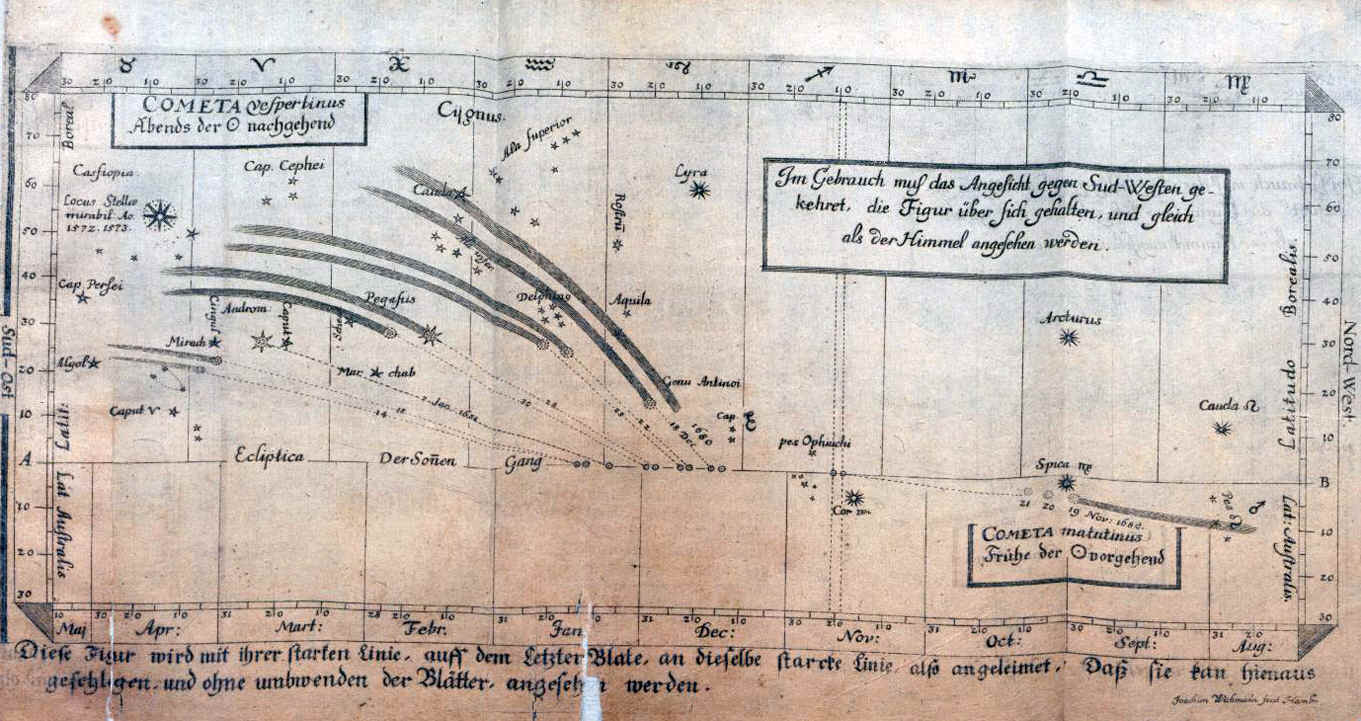 ♉ ♈ ♓ ♒ ♑ ♐ ♏ ♎ ♍
30 20 10 30 20 10 30 20 10 30 20 10 30 20 10 30 20 10 30 20 10 30 20 10 30 20 10
COMETA Vespertinus
Abends der ☉ nachgehend
Boreal
80
70
60
50
40
30
20
10
A
10
20
30
Latit:
Lat Australis
Sud-Ost
Cygnus.
Ala Superior
Cassiopia
Cap. Cephei
Locus Stellæ
mirabil Ao.
1572. 1573.
Cauda
Rostru
Lyra
Im Gebrauch muß das Angesicht gegen Sud-Westen ge-
kehret, die Figur über sich gehalten, und gleich
als der Himmel angesehen werden.
Cap Persei
Androm:
Cingul
Caput
Pegasus
Delphinus
Aquila
Mirach
Algol
Mar chab
Genu Antinoi
Arcturus
Caput ♈
14
2 Jan. 1681
30
28
22
18 Dec 1680
Cap. ♑
Cauda ♌
Ecliptica Der Soñen Gang
pes Ophiuchi
Spica ♍
Cor ♏
21 20 19 Nov: 1680.
Pes ♌
♂
COMETA matutinus
Frühe der ☉ vorgehend
80
70
60
50
40
30
20
10
B
10
20
30
Latitudo Borealis.
Lat: Australis.
Nord-West.
Maj Apr: Mart: Febr. Jan Dec: Nov: Oct: Sept: Aug:
Diese Figur wird mit ihrer starken Linie, auff dem Letzten Blate, an dieselbe starcke Linie, also angeleimet, Daß sie kan hienaus
geschlagen, und ohne umbwenden der Blätter, angesehen werden.
Joachim Wichman fecit Hamb.